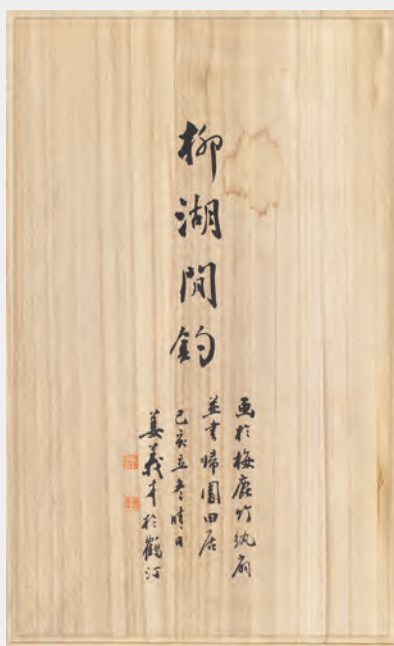 柳湖閒釣
画於梅鹿竹紈扇
並書歸園田居
己亥立冬晴日
姜義才於鶴汀